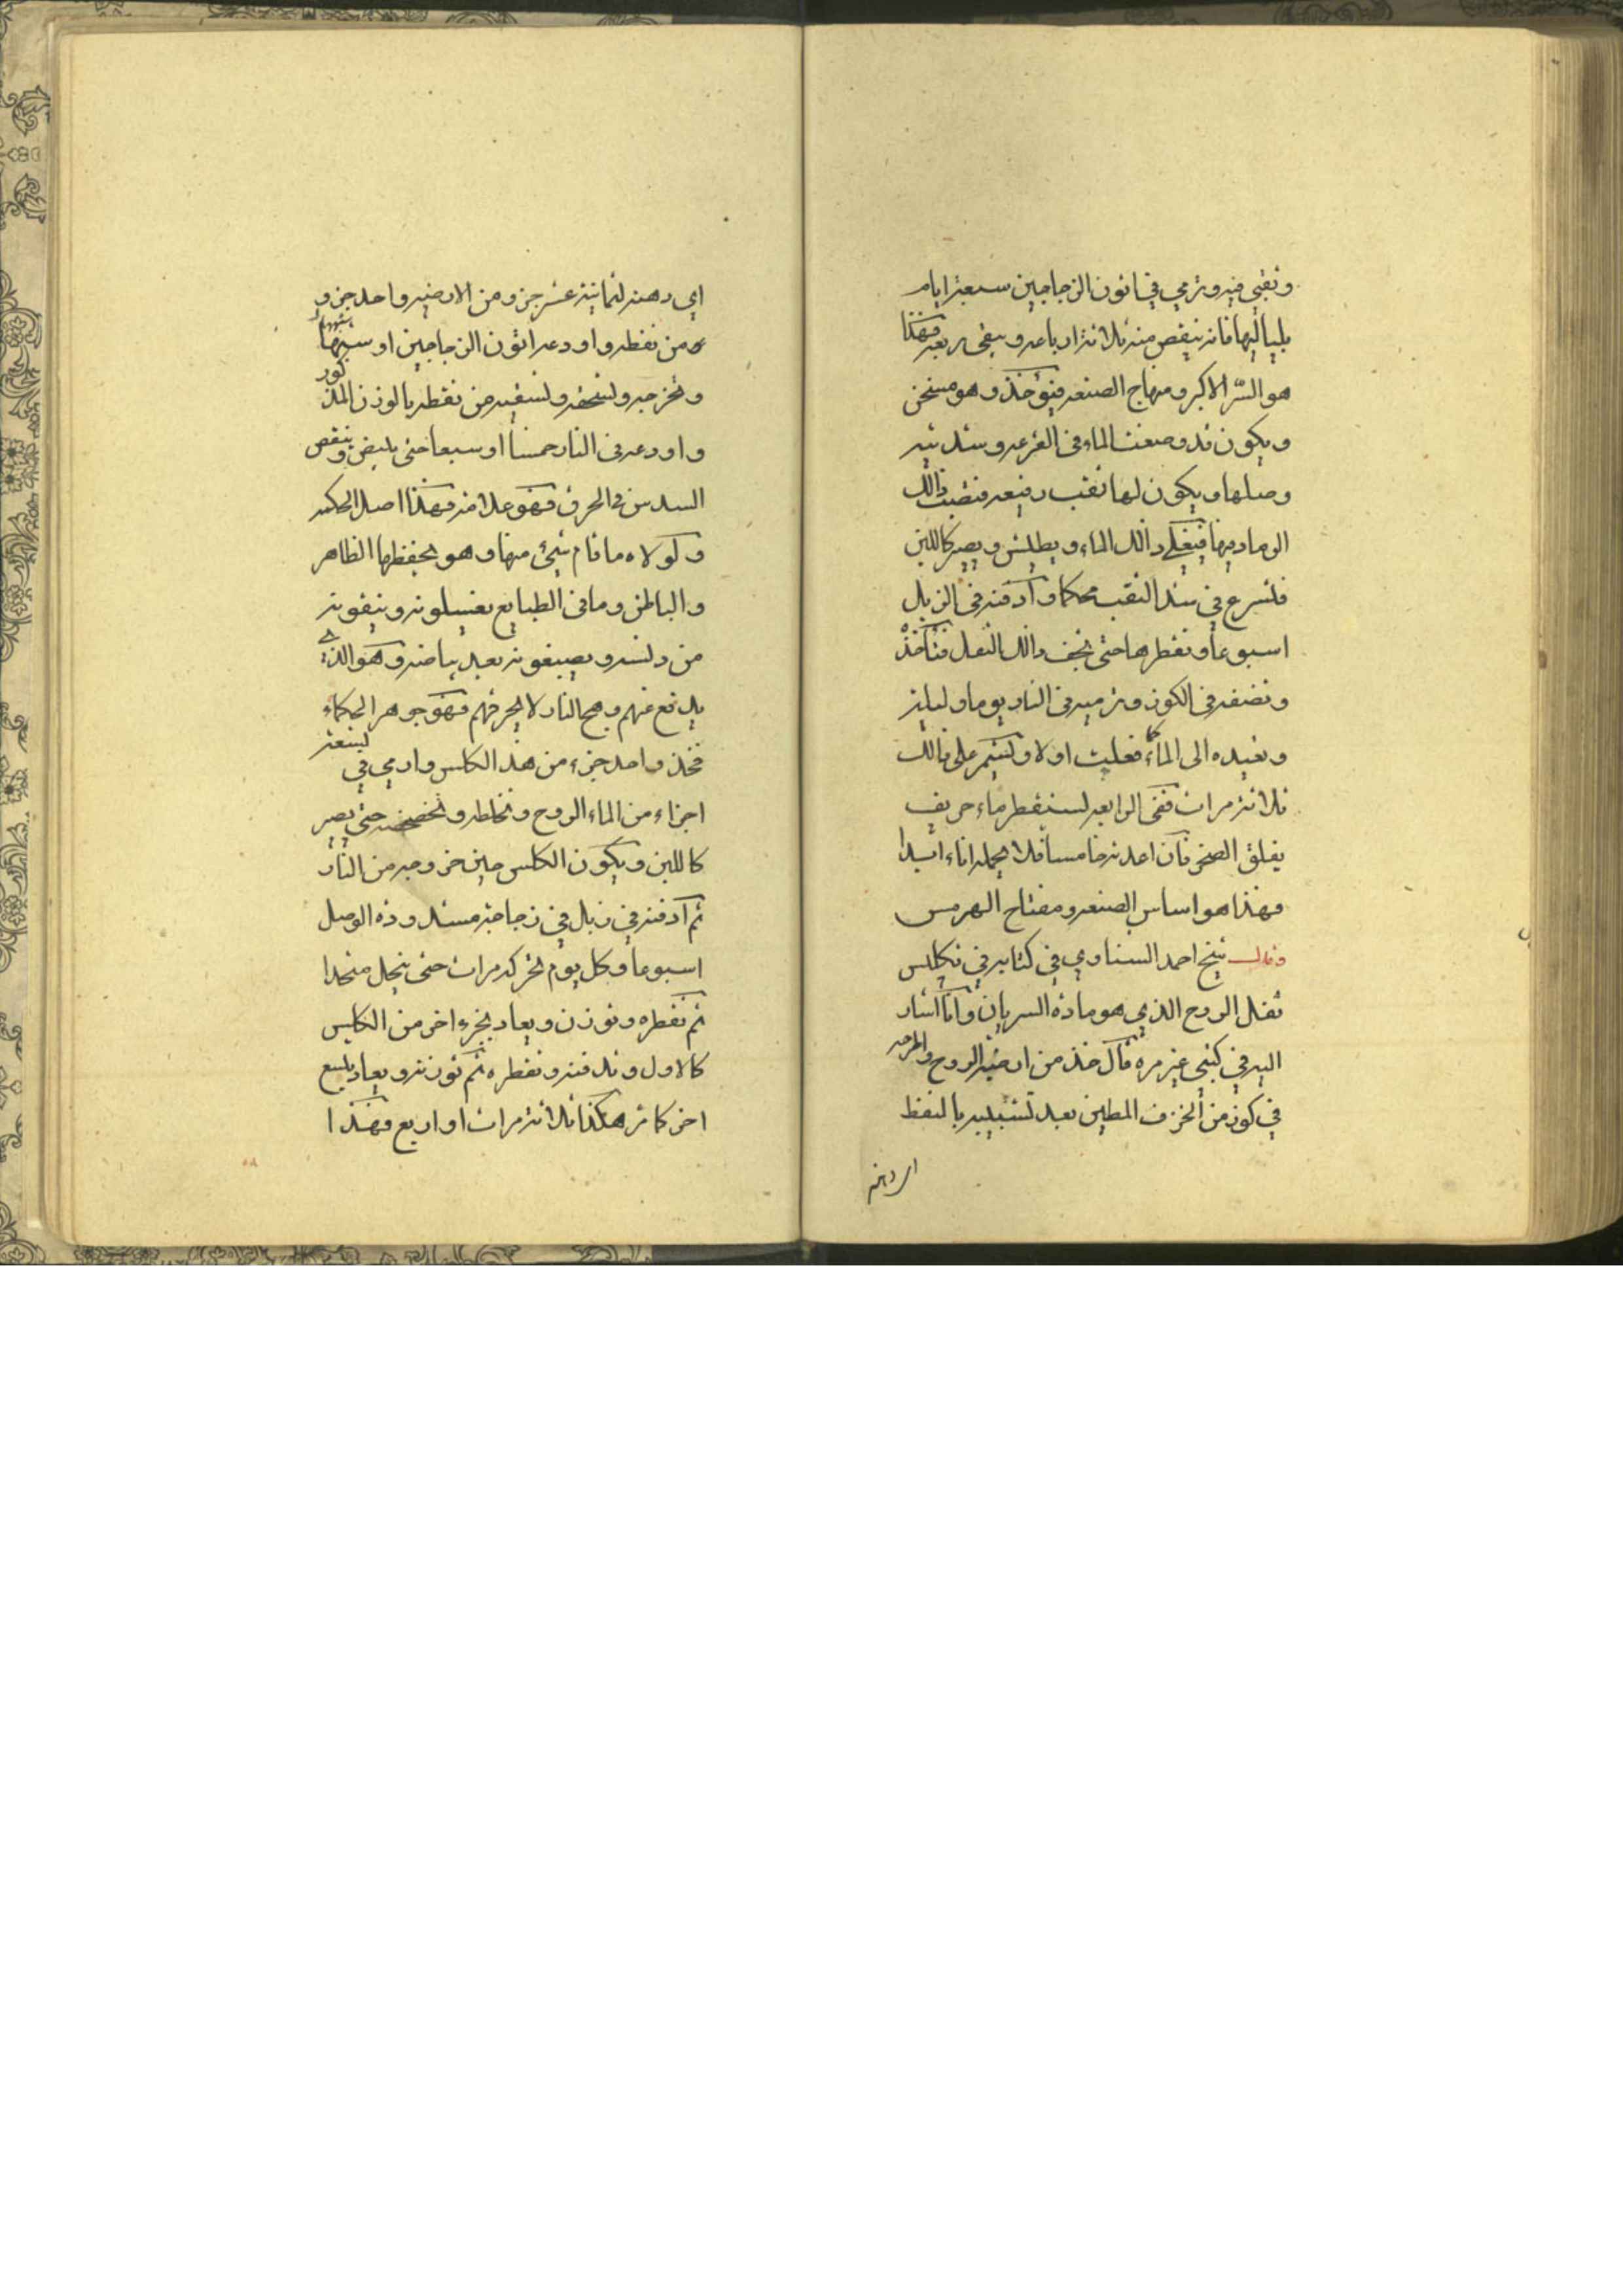 وتقي فيه وترمي في اتون الزجاجين سبعة ايام
بلياليها فانه ينقص منه ثلاثة ارباعه ويبقى ربعه فهذا
هو السّر الاكبر ومنهاج الصنعه فيؤخذ وهو مسخن
ويكون قد وضعت الماء في القرعه وسديته
وصلها ويكون لها ثقب رفيعه فتصب ذالك
الرماد فيها فيغلي ذالك الماء ويطيش ويصير كاللبن
فتسرع في سد الثقب محكما وادفنه في الزبل
اسبوعا وتقطرها حتى يجف ذالك الثفل فتأخذه
وتضفه في الكوز وترميه في النار يوما وليلة
وتعيده الى الماء كما فعليت اولا وتستمر على ذالك
ثلاثة مرات ففي الرابعه تستقطر ماء حريف
يفلق الصخر فان اعدته خامسا فلا يحمله اناء ابدا
فهذا هو اساس الصنعه ومفتاح الهرمس
وقال شيخ احمد السناوي في كتابه في تكليس
ثفل الروح الذي هو مادة السريان وانا اشار
اليه في كتبي غير مره قال خذ من ارضية الروح واطرحه
في كوز من الخزف المطين بعد تشبيبه بالنفط
اي دهنه
اي دهنه لثمانية عشر جزو ومن الارضيه واحد جزو
ومن نفطه واودعه اتون الزجاجين او شبهها
وتخرجه وتسحقه وتسقيه من نفطه بالوزن المذكور
واودعه في النار خمسا او سبعا حتى يبيض وينقص
السدس في الحرق فهو علامته فهذا اصل الحكمه
ولولاه ما قام شيئ منها وهو يحفظها الظاهر
والباطن وما في الطبايع يغسلونه وينقونه
من دنسه ويصبغونه بعد بياضه وهو الذي
يدفع عنهم وهج النار لا يحرقهم فهو جوهر الحكماء
فخذ واحد جزء من هذ الكلس وارمي في تسعة
اجزاء من الماء الروح وتخلطه وتخضخضه حتى يصير
كاللبن ويكون الكلس حين خروجه من النار
ثم ادفنه في زبل في زجاجة مسدوده الوصل
اسبوعا وكل يوم تحركه مرات حتى ينحل متحدا
ثم تقطره وتوزن ويعاد بجزء اخر من الكليس
كالاول وتدفنه وتقطره ثم توزنه ويعاد بتسع
اخر كامر هكذا ثلاثة مرات او اربع فهذا